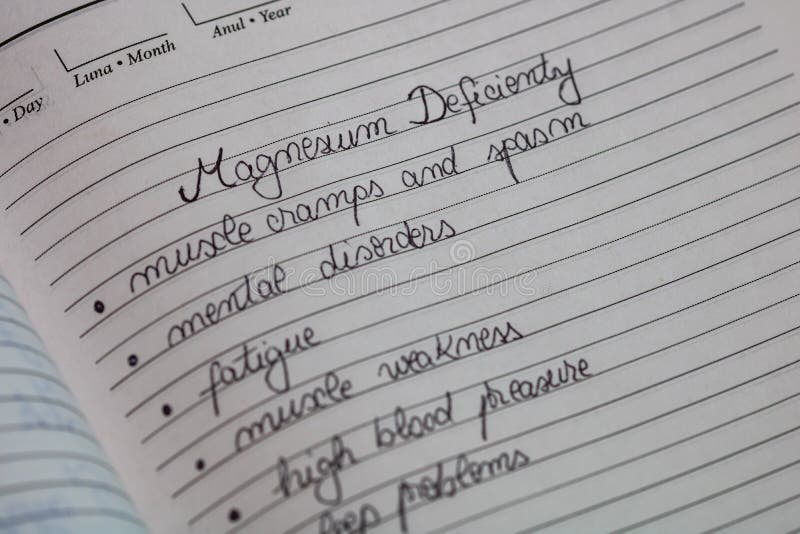 • Day
Luna • Month
Anul • Year
Magnesium Deficienty
• muscle cramps and spasm
• mental disorders
• fatigue
• muscle weakness
• high blood preasure
problems
dreamstime